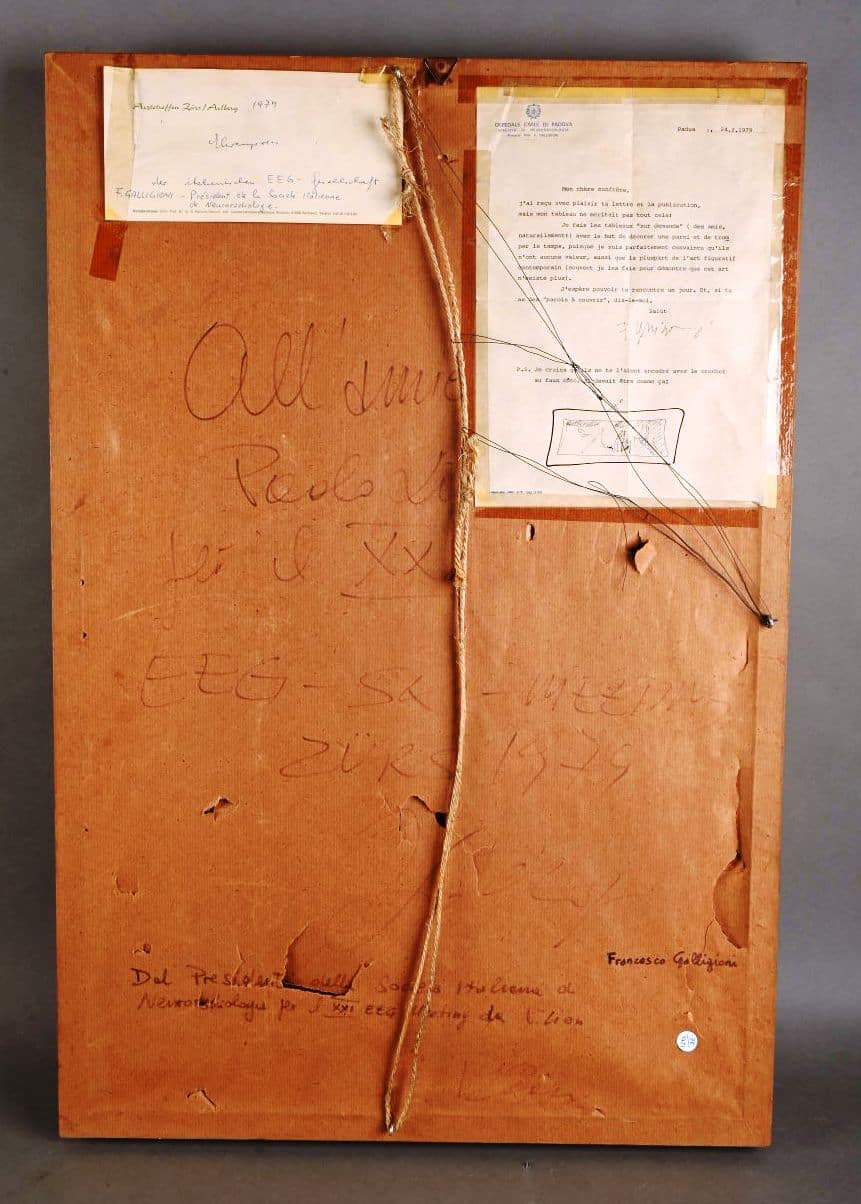 Ärztetreffen Zürs/Arlberg 1979
der italienischen EEG - Gesellschaft
F. GALLIGIONI - Président de la Société Italienne
de Neuroradiologie.
OSPEDALE CIVILE DI PADOVA
Padya 24.I.1979
Mon chère confrère,
j'ai reçu avec plaisir ta lettre et la publication,
mais mon tableau ne méritait pas tout cela!
Je fais les tableaux "sur demande" ( des amis,
naturellement) avec le but de décorer une paroi et de tromper
per le temps, puisque je suis parfaitement convaincu qu'ils
n'ont aucune valeur, aussi que la plupart de l'art figuratif
contemporain (souvent je les fais pour démontre que cet art
n'existe plus).
J'espère pouvoir te rencontre un jour. Et, si tu
as des "parois à couvrir", dis-le-moi.
Salut
P.S. Je crains qu'ils ne te l'aient encadré avec le crochet
au faux côté. Il devait être comme ça:
All'amico
Paolo
per il XX
EEG - SKI - MEETING
ZÜRS 1979
Francesco Galligioni
Dal Presidente della Società Italiana di
Neuroradiologia per il XXI EEG Meeting da